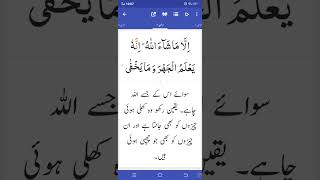 اِلَّا مَا شَآءَ اللّٰهُ ؕ اِنَّهٗ
یَعْلَمُ الْجَهْرَ وَ مَا یَخْفٰی
سوائے اس کے جسے اللہ
چاہے۔ یقین رکھو وہ کھلی ہوئی
چیزوں کو بھی جانتا ہے اور ان
چیزوں کو بھی جو چھپی ہوئی
ہیں۔